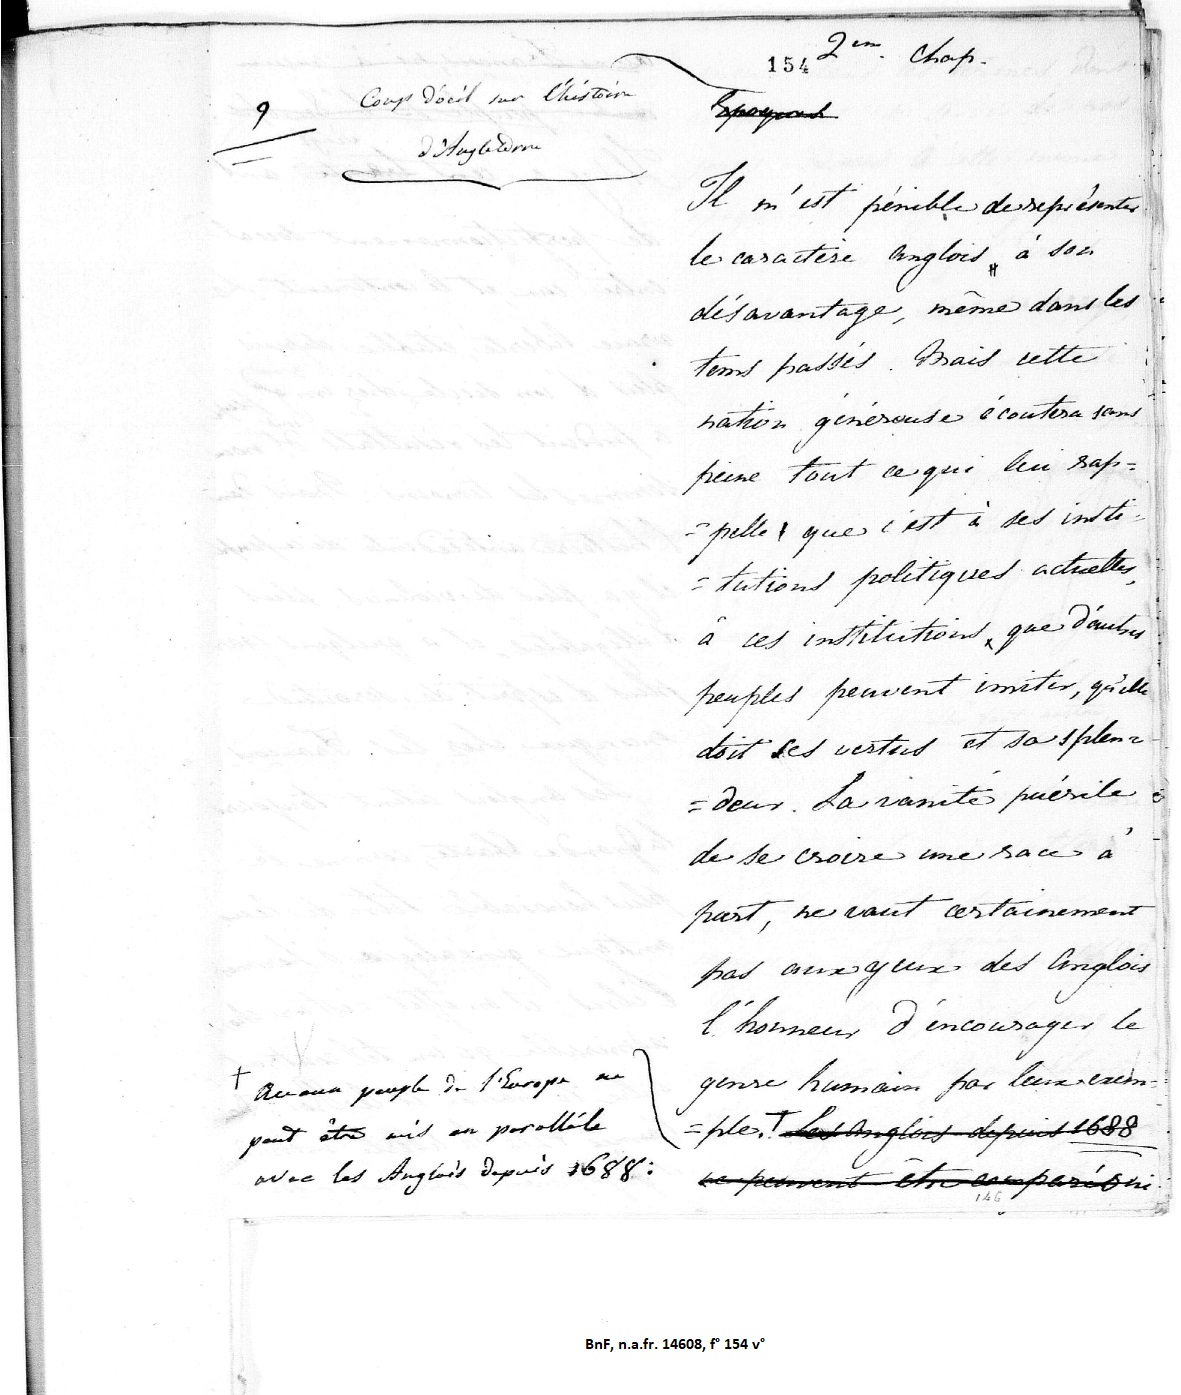 154 2em. Chap.
9
Coup d'œil sur l'histoire
d'Angleterre
Il m'est pénible de représenter
le caractère anglois à son
désavantage, même dans les
tems passés. Mais cette
nation généreuse écoutera sans
peine tout ce qui lui rap=
=pelle que c'est à ses insti=
=tutions politiques actuelles,
à ces institutions que d'autres
peuples peuvent imiter, qu'elle
doit ses vertus et sa splen=
=deur. La vanité puérile
de se croire une race à
part, ne vaut certainement
pas aux yeux des Anglois
l'honneur d'encourager le
genre humain par leur exem=
=ple. † Les Anglois depuis 1688
ne peuvent être comparés ni
† Aucun peuple de l'Europe ne
peut être mis en parallèle
avec les Anglois depuis 1688:
146
BnF, n.a.fr. 14608, f° 154 v°